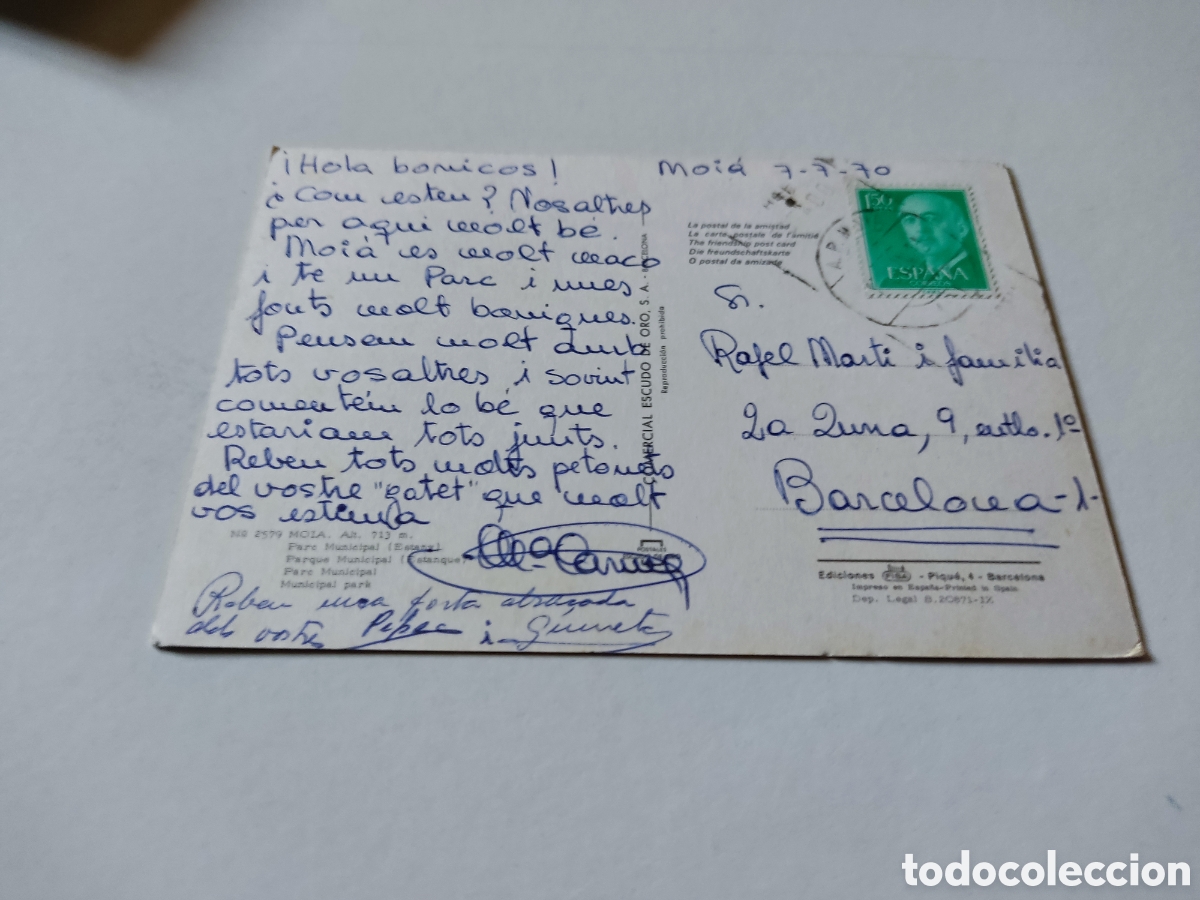 ¡Hola bonicos!
Moiá 7-7-70
¿Com esteu? Nosaltres
per aquí molt bé.
Moiá es molt maco
i te un Parc i unes
fonts molt boniques.
Pensem molt amb
tots vosaltres i sovint
comentém lo bé que
estariam tots junts.
Reben tots molts petonets
del vostre "gatet" que molt
vos estima
Mª Carmen
Nº 2579 MOIA. Alt. 713 m.
Parc Municipal (Estany)
Parque Municipal (Estanque)
Parc Municipal
Municipal park
Reben una forta abraçada
dels vostres Pepe i
COMERCIAL ESCUDO DE ORO, S. A. - BARCELONA
Reproducción prohibida
La postal de la amistad
La carte postale de l'amitié
The friendship post card
Die freundschaftskarte
O postal da amizade
1,50
ESPAÑA
CORREOS
Sr.
Rafel Marti i familia
La Lluna, 9, entlo. 1º
Barcelona-1-
Ediciones - Piqué, 4 - Barcelona
Impreso en España-Printed in Spain
Dep. Legal B. 20871-IX
todocoleccion